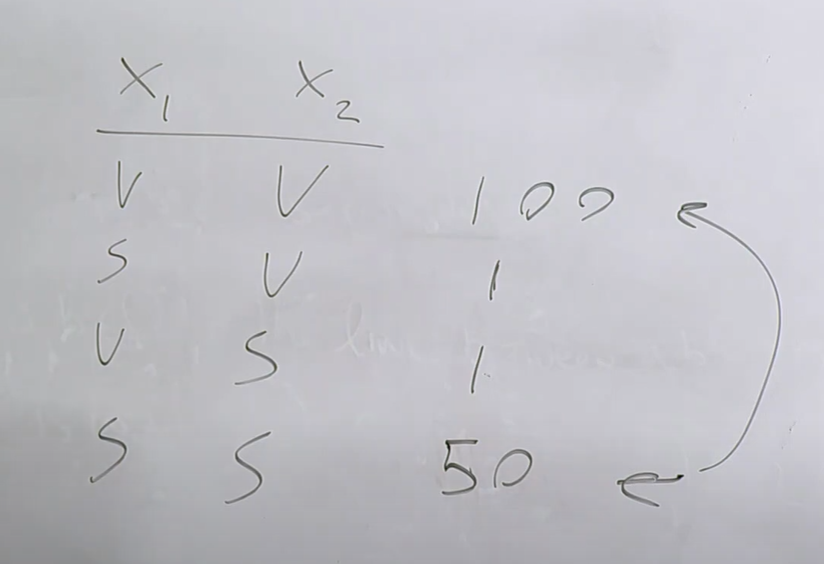 X₁ X₂
V V 100
S V 1
V S 1
S S 50